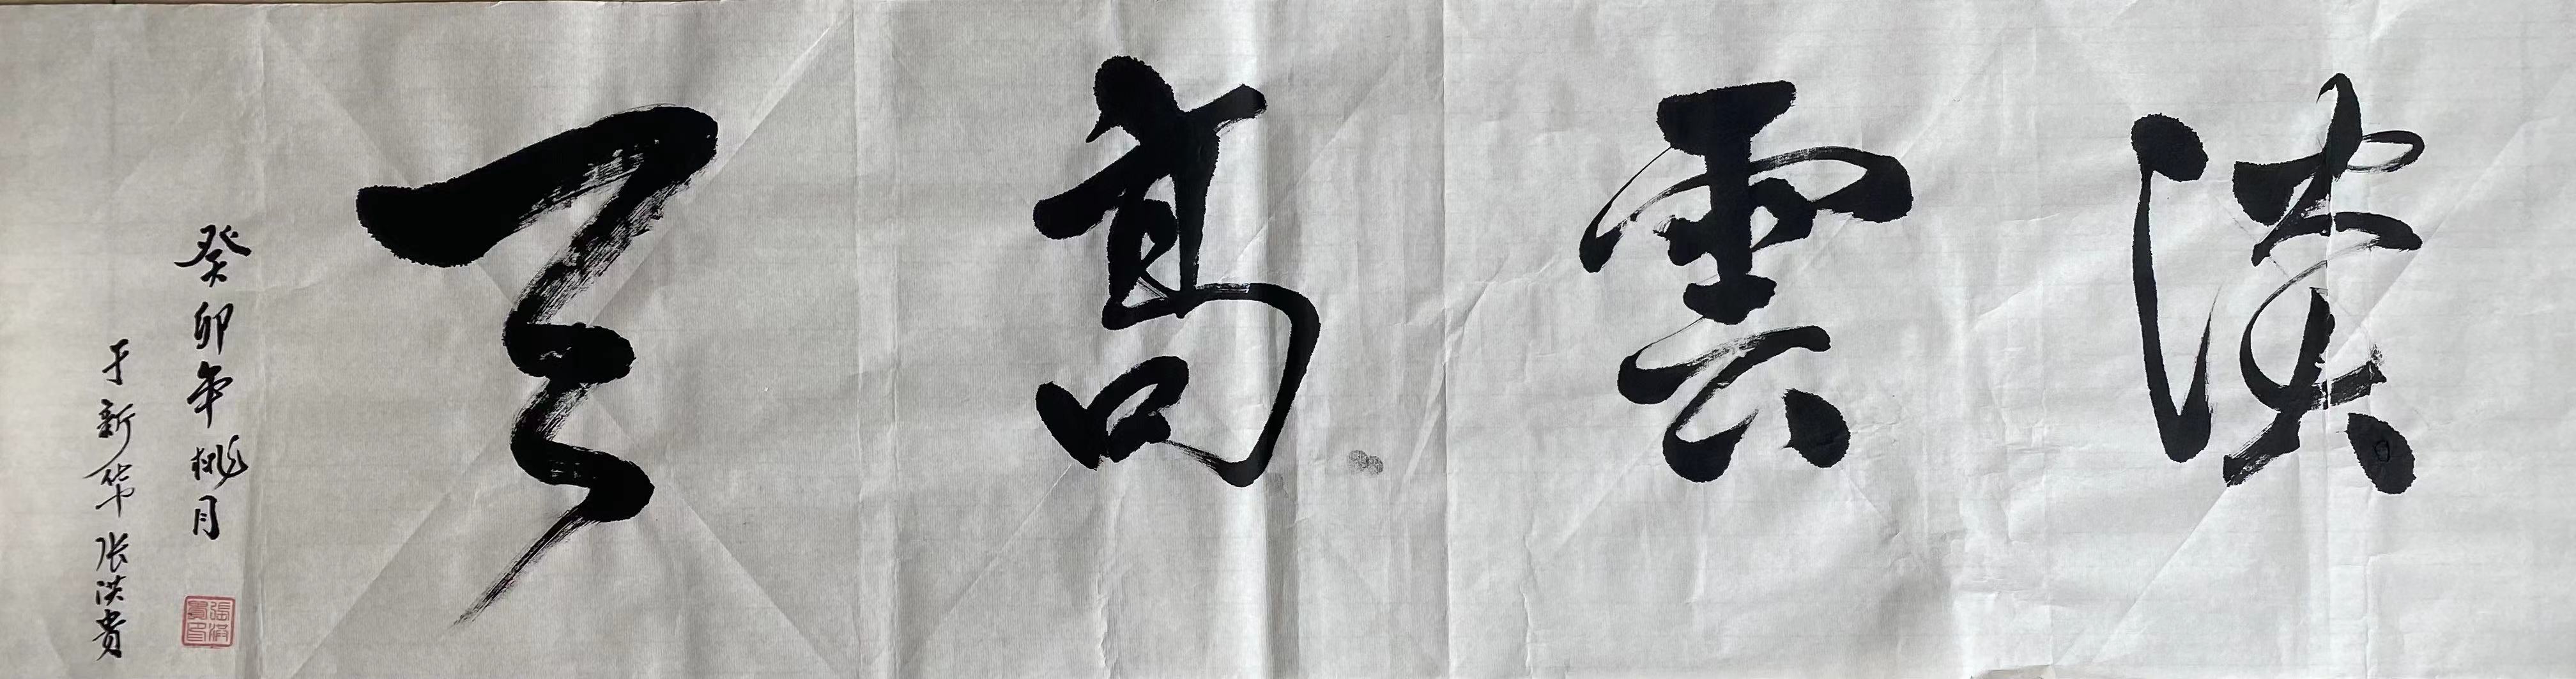 天高雲淡
癸卯年桃月
于新华张洪貴
張洪貴印